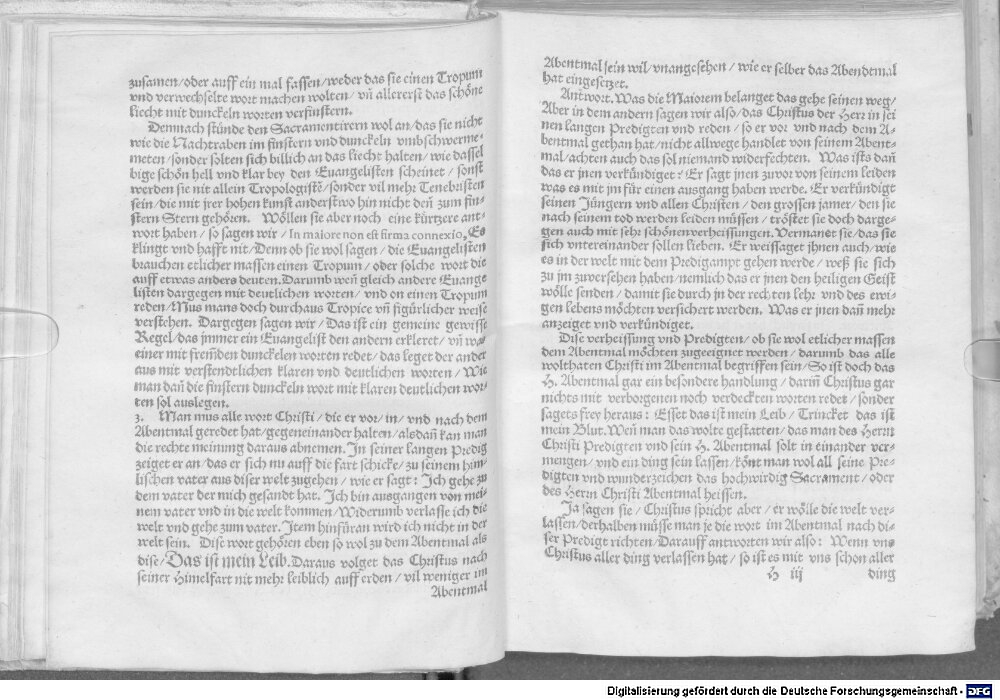 zusamen/oder auff ein mal fassen/weder das sie einen Tropum
vnd verwechselte wort machen wolten/ vñ allererst das schöne
liecht mit dunckeln worten verfinstern.
Demnach stünde den Sacramentirern wol an/das sie nicht
wie die Nachtraben im finstern vnd dunckeln vmbschwerme-
meten/sonder solten sich billich an das liecht halten/wie dassel
bige schön hell vnd klar bey den Euangelisten scheinet/ sonst
werden sie nit allein Tropologistē/sonder vil mehr Tenebristen
sein/die mit jrer hohen kunst anderstwo hin nicht deñ zum fin-
stern Stern gehören. Wöllen sie aber noch eine kürtzere ant-
wort haben/ so sagen wir/ In maiore non est firma connexio. Es
klingt vnd hafft nit/Denn ob sie wol sagen/ die Euangelisten
brauchen etlicher massen einen Tropum/oder solche wort die
auff etwas anders deuten. Darumb weñ gleich andere Euange
listen dargegen mit deutlichen worten/vnd on einen Tropum
reden/Mus mans doch durchaus Tropice vñ figürlicher weise
verstehen. Dargegen sagen wir/Das ist ein gemeine gewisse
Regel/das jmmer ein Euangelist den andern erkleret/ vñ was
einer mit fremden dunckelen worten redet/das leget der ander
aus mit verstendtlichen klaren vnd deutlichen worten/ Wie
man dañ die finstern dunckeln wort mit klaren deutlichen wor-
ten sol auslegen.
3. Man mus alle wort Christi/die er vor/in/ vnd nach dem
Abentmal geredet hat/gegeneinander halten/alsdañ kan man
die rechte meinung daraus abnemen. In seiner langen Predig
zeiget er an/das er sich nu auff die fart schicke/zu seinem him
lischen vater aus diser welt zugehen/ wie er sagt: Ich gehe zu
dem vater der mich gesandt hat. Ich bin ausgangen von mei-
nem vater vnd in die welt kommen/Widerumb verlasse ich die
welt vnd gehe zum vater. Item hinfüran wird ich nicht in der
welt sein. Dise wort gehören eben so wol zu dem Abentmal als
dise/Das ist mein Leib. Daraus volget das Christus nach
seiner Himelfart nit mehr leiblich auff erden/ vil weniger im
Abentmal
Abentmal sein wil/vnangesehen/ wie er selber das Abendtmal
hat eingesetzet.
Antwort. Was die Maiorem belanget das gehe seinen weg/
Aber in dem andern sagen wir also/das Christus der Herr in sei
nen langen Predigten vnd reden/ so er vor vnd nach dem A-
bentmal gethan hat/nicht allwege handlet von seinem Abent-
mal/achten auch das sol niemand widerfechten. Was ists dañ
das er jnen verkündiget? Er sagt jnen zuvor von seinem leiden
was es mit jm für einen ausgang haben werde. Er verkündigt
seinen Jüngern vnd allen Christen/ den grossen jamer/den sie
nach seinem tod werden leiden müssen/ tröstet sie doch darge-
gen auch mit sehr schönen verheissungen. Vermanet sie/das sie
sich vntereinander sollen lieben. Er weissaget jhnen auch/wie
es in der welt mit dem Predigampt gehen werde/ weß sie sich
zu jm zuversehen haben/nemlich das er jnen den heiligen Geist
wölle senden/ damit sie durch jn der rechten lehr vnd des ewi-
gen lebens möchten versichert werden. Was er jnen dañ mehr
anzeiget vnd verkündiget.
Dise verheissung vnd Predigten/ ob sie wol etlicher massen
dem Abentmal möchten zugeeignet werden/ darumb das alle
wolthaten Christi im Abentmal begriffen sein/So ist doch das
H. Abentmal gar ein besondere handlung/ dariñ Christus gar
nichts mit verborgenen noch verdeckten worten redet/sonder
sagets frey heraus: Esset das ist mein Leib/ Trincket das ist
mein Blut. Weñ man das wolte gestatten/das man des Herrn
Christi Predigten vnd sein H. Abentmal solt in einander ver-
mengen/ vnd ein ding sein lassen/könt man wol all seine Pre-
digten vnd wunderzeichen das hochwirdig Sacrament/ oder
des Herrn Christi Abentmal heissen.
Ja sagen sie/ Christus spricht aber/ er wölle die welt ver-
lassen/derhalben müsse man je die wort im Abentmal nach di-
ser Predigt richten/Darauff antworten wir also: Wenn vns
Christus aller ding verlassen hat/ so ist es mit vns schon aller
H iij ding
Digitalisierung gefördert durch die Deutsche Forschungsgemeinschaft - DFG